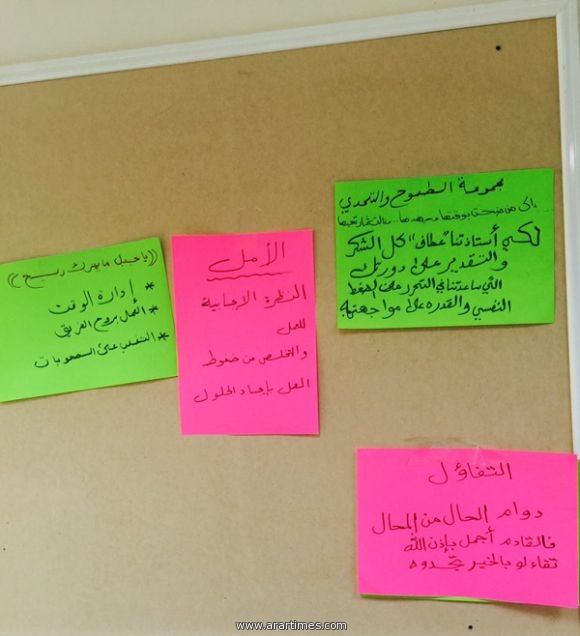 مجموعة الطموح والتحدي
إلى من منحتنا بوقتها وجهدها
لكي أستاذتنا "عطاف" كل الشكر
والتقدير على دورتك
التي ساعدتنا في التحرر من الضغط
النفسي والقدره على مواجهته
الأمل
النظرة الإيجابية
للعمل
والتخلص من ضغوط
العمل بإيجاد الحلول
((ياجبل ما يهزك ريح))
* إدارة الوقت
* العمل بروح الفريق
* التغلب على الصعوبات
التفاؤل
دوام الحال من المحال
فالقادم أجمل بإذن الله
تفاءلو بالخير تجدوه
www.arartimes.com